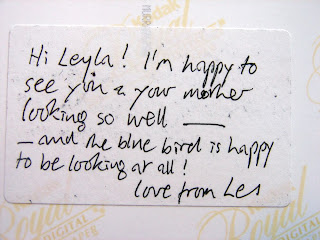 Kodak
Royal
DIGITAL
Hi Leyla! I'm happy to
see you & your mother
looking so well —
— and the blue bird is happy
to be looking at all!
love from Les
Royal
DIGITAL
Royal